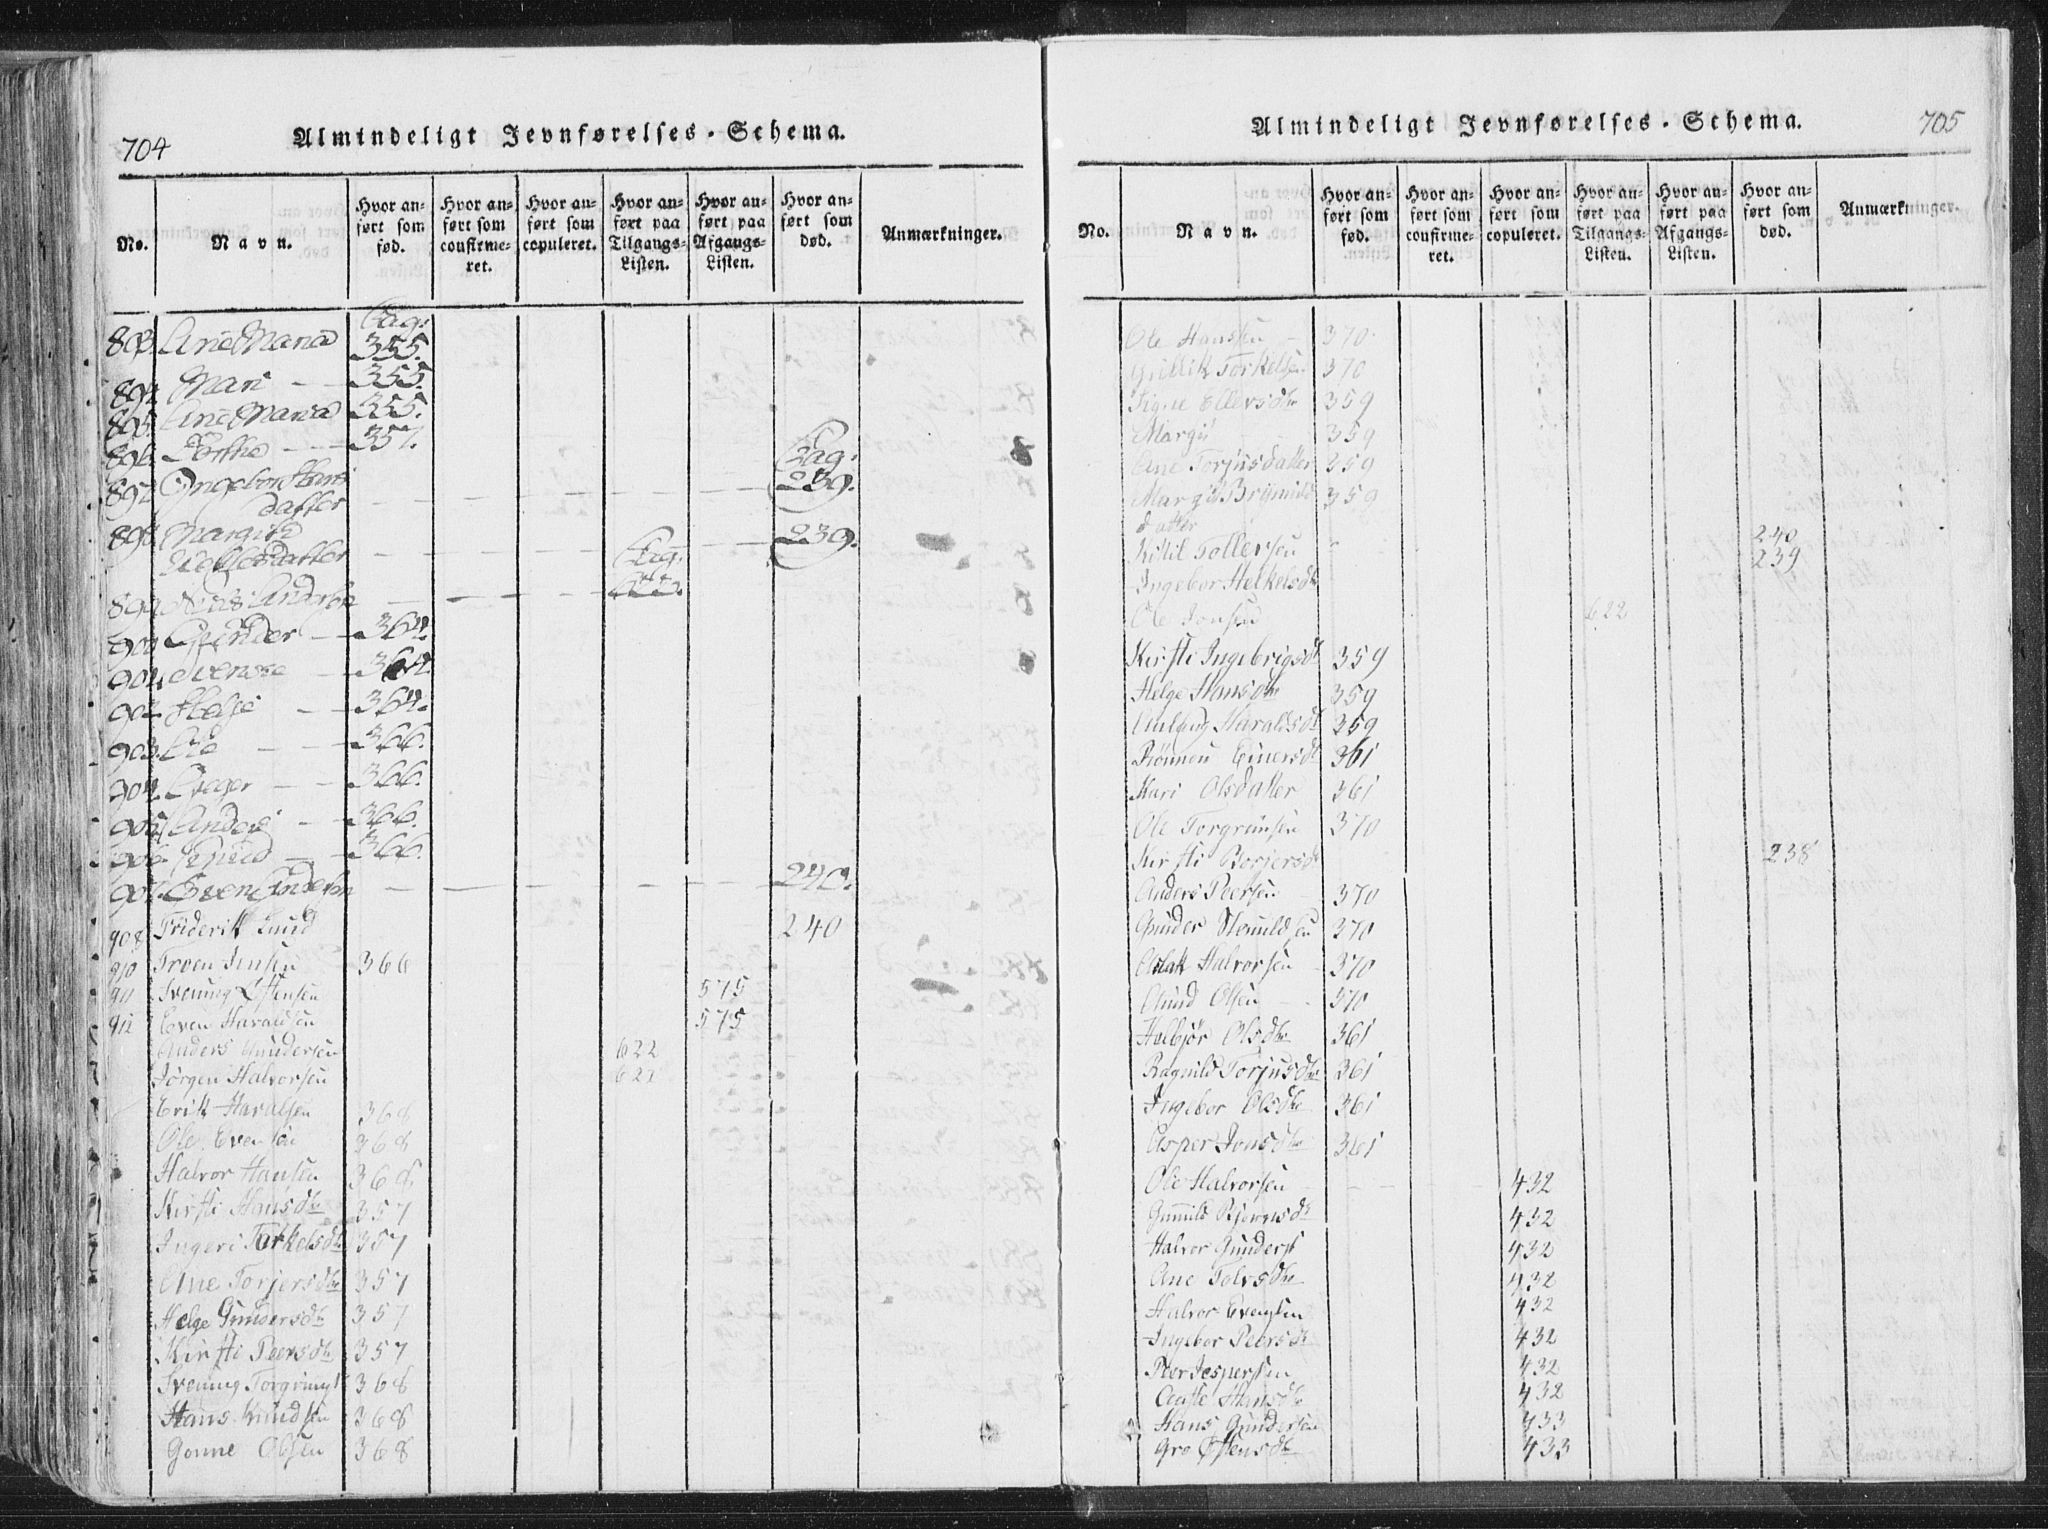 704
Almindeligt Jevnførelses-Schema.
No.
Navn.
Hvor anført som fød.
Hvor anført som confirmeret.
Hvor anført som copuleret.
Hvor anført paa Tilgangs-Listen.
Hvor anført paa Afgangs-Listen.
Hvor anført som død.
Anmærkninger.
Pag:
893. Ane Maria 355.
894. Mari 355.
895. Ane Maria 355.
896. 357.
Pag:
897. Ingebor Hans 239.
datter
898. Margith 239.
datter
Pag:
899. Niels Andersen 622.
900. Gunder 364.
901. 364.
902. Helje 364.
903. Ole 366.
904. 366.
905. Anders 366.
906. 366.
907. Even Andersen 240.
908 Friderik Lund 240
910 Troen Jensen 366
911 Svenung Østensen 575
912 Even Haraldsen 575
Anders Gundersen 622
Jørgen Halvorsen 622
Erik Haralsen 368
Ole Evensen 368
Halvor Hansen 368
Kirsti Hansdtr 357
Ingeri Torkelsdtr 357
Ane Torjersdtr 357
Helge Gundersdtr 357
Kirsti Peersdtr 357
Svenung Torgrims 368
Hans Knudsen 368
Gonne Olsen 368
705
Almindeligt Jevnførelses-Schema.
No.
Navn.
Hvor anført som fød.
Hvor anført som confirmeret.
Hvor anført som copuleret.
Hvor anført paa Tilgangs-Listen.
Hvor anført paa Afgangs-Listen.
Hvor anført som død.
Anmærkninger.
Ole Hansen 370
Grellik Torkelsen 370
Signe Ellersdtr 359
Margit 359
Ane Torjusdatter 359
Margit Brynild 359
datter
Kittil Tollefsen 240
Ingebor Helkelsdtr 239
Ole Jonsen 622
Kirsti Ingebrigsdt 359
Helge Hansdtr 359
Aslaug Haraldsdt 359
Rønnou Einersdt 361
Kari Olsdatter 361
Ole Torgrimsen 370
Kirsti Borjersdt 238
Anders Peersen 370
Gunder Stenuldsen 370
Aslak Halvorsen 370
Amund Olsen 370
Halbjør Olsdtr 361
Ragnild Torjusdtr 361
Ingebor Olsdtr 361
Asper Jonsdtr 361
Ole Halvorsen 432
Gunnild Bjørnsdt 432
Halvor Gunders 432
Ane Tolvsdtr 432
Halvor Evensen 432
Ingebor Peersdt 432
Peer Jespersen 432
Aaste Hansdtr 432
Hans Gundersen 433
Gro Østensdtr 433